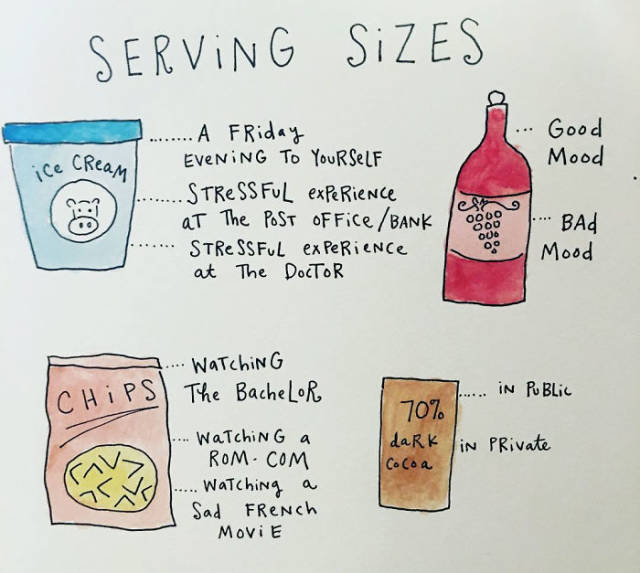 SERViNG SiZES
iCE CREAM
A FRiday
EVENiNG To YouRSELF
STReSSFuL expeRience
aT The PoST oFFice/BANK
STReSSFuL expeRience
at The DocToR
Good
Mood
BAd
Mood
CHiPS
WaTCHiNG
The BacheLoR
WaTCHiNG a
RoM-CoM
WaTCHiNG a
Sad FReNch
MoviE
70%
daRK
CoCoa
iN PuBLic
iN PRivate